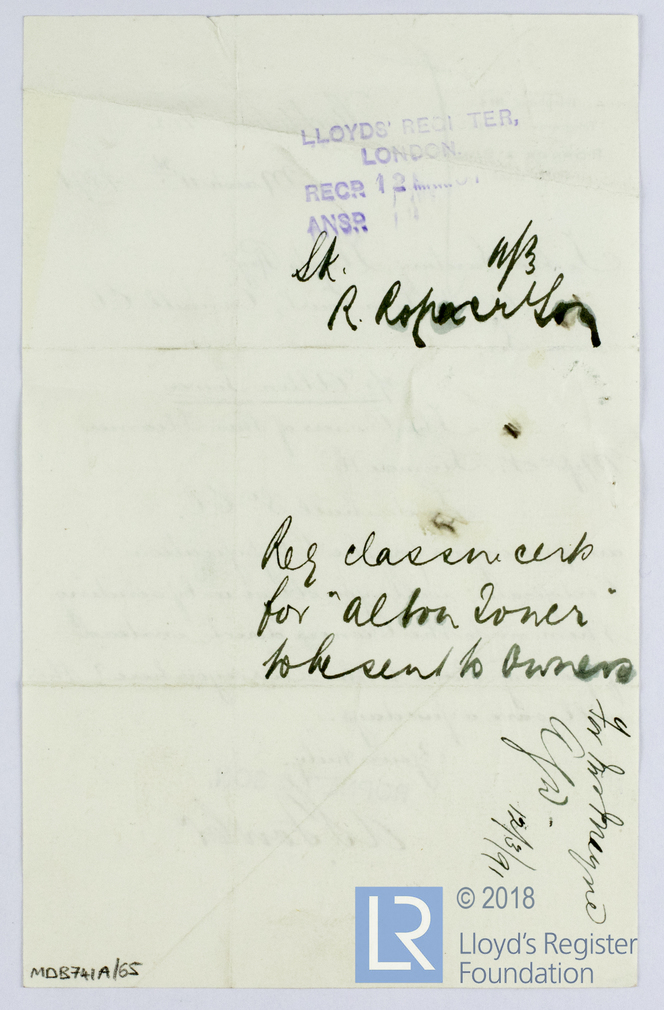 LLOYDS' REGI TER,
LONDON.
RECD. 12
ANSD.
Sk. 11/3
R. Ropner & Son
Req classn. certs
for "Alton Tower"
to be sent to Owners
12/3/91
MDB741A/65
LR
© 2018
Lloyd's Register
Foundation